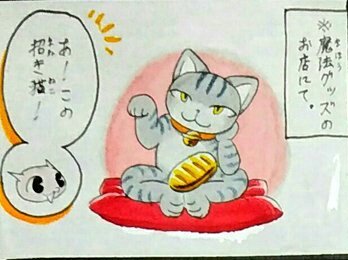 ※魔法グッズの
まほう
お店にて。
あー！この
招き猫！
まね ねこ